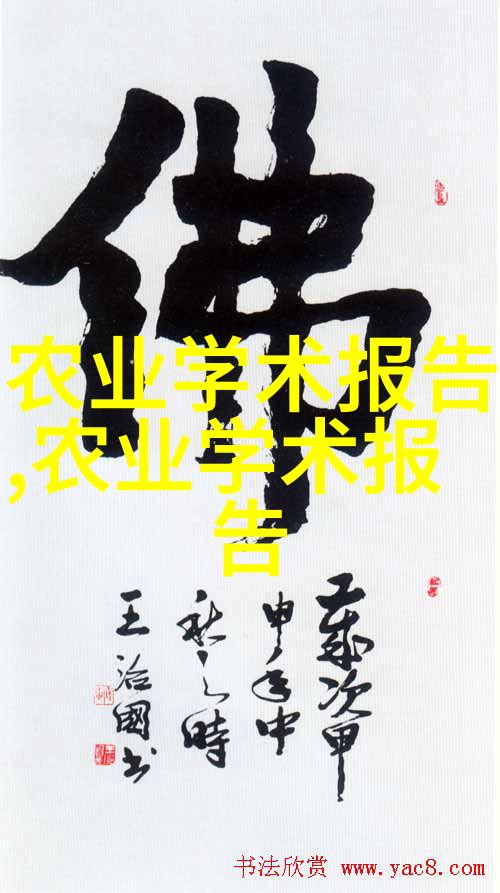 佛
农业学术报告
,农业学术报
告
歲次甲
申年中
秋之時
王治國书
书法欣赏 www.yac8.com